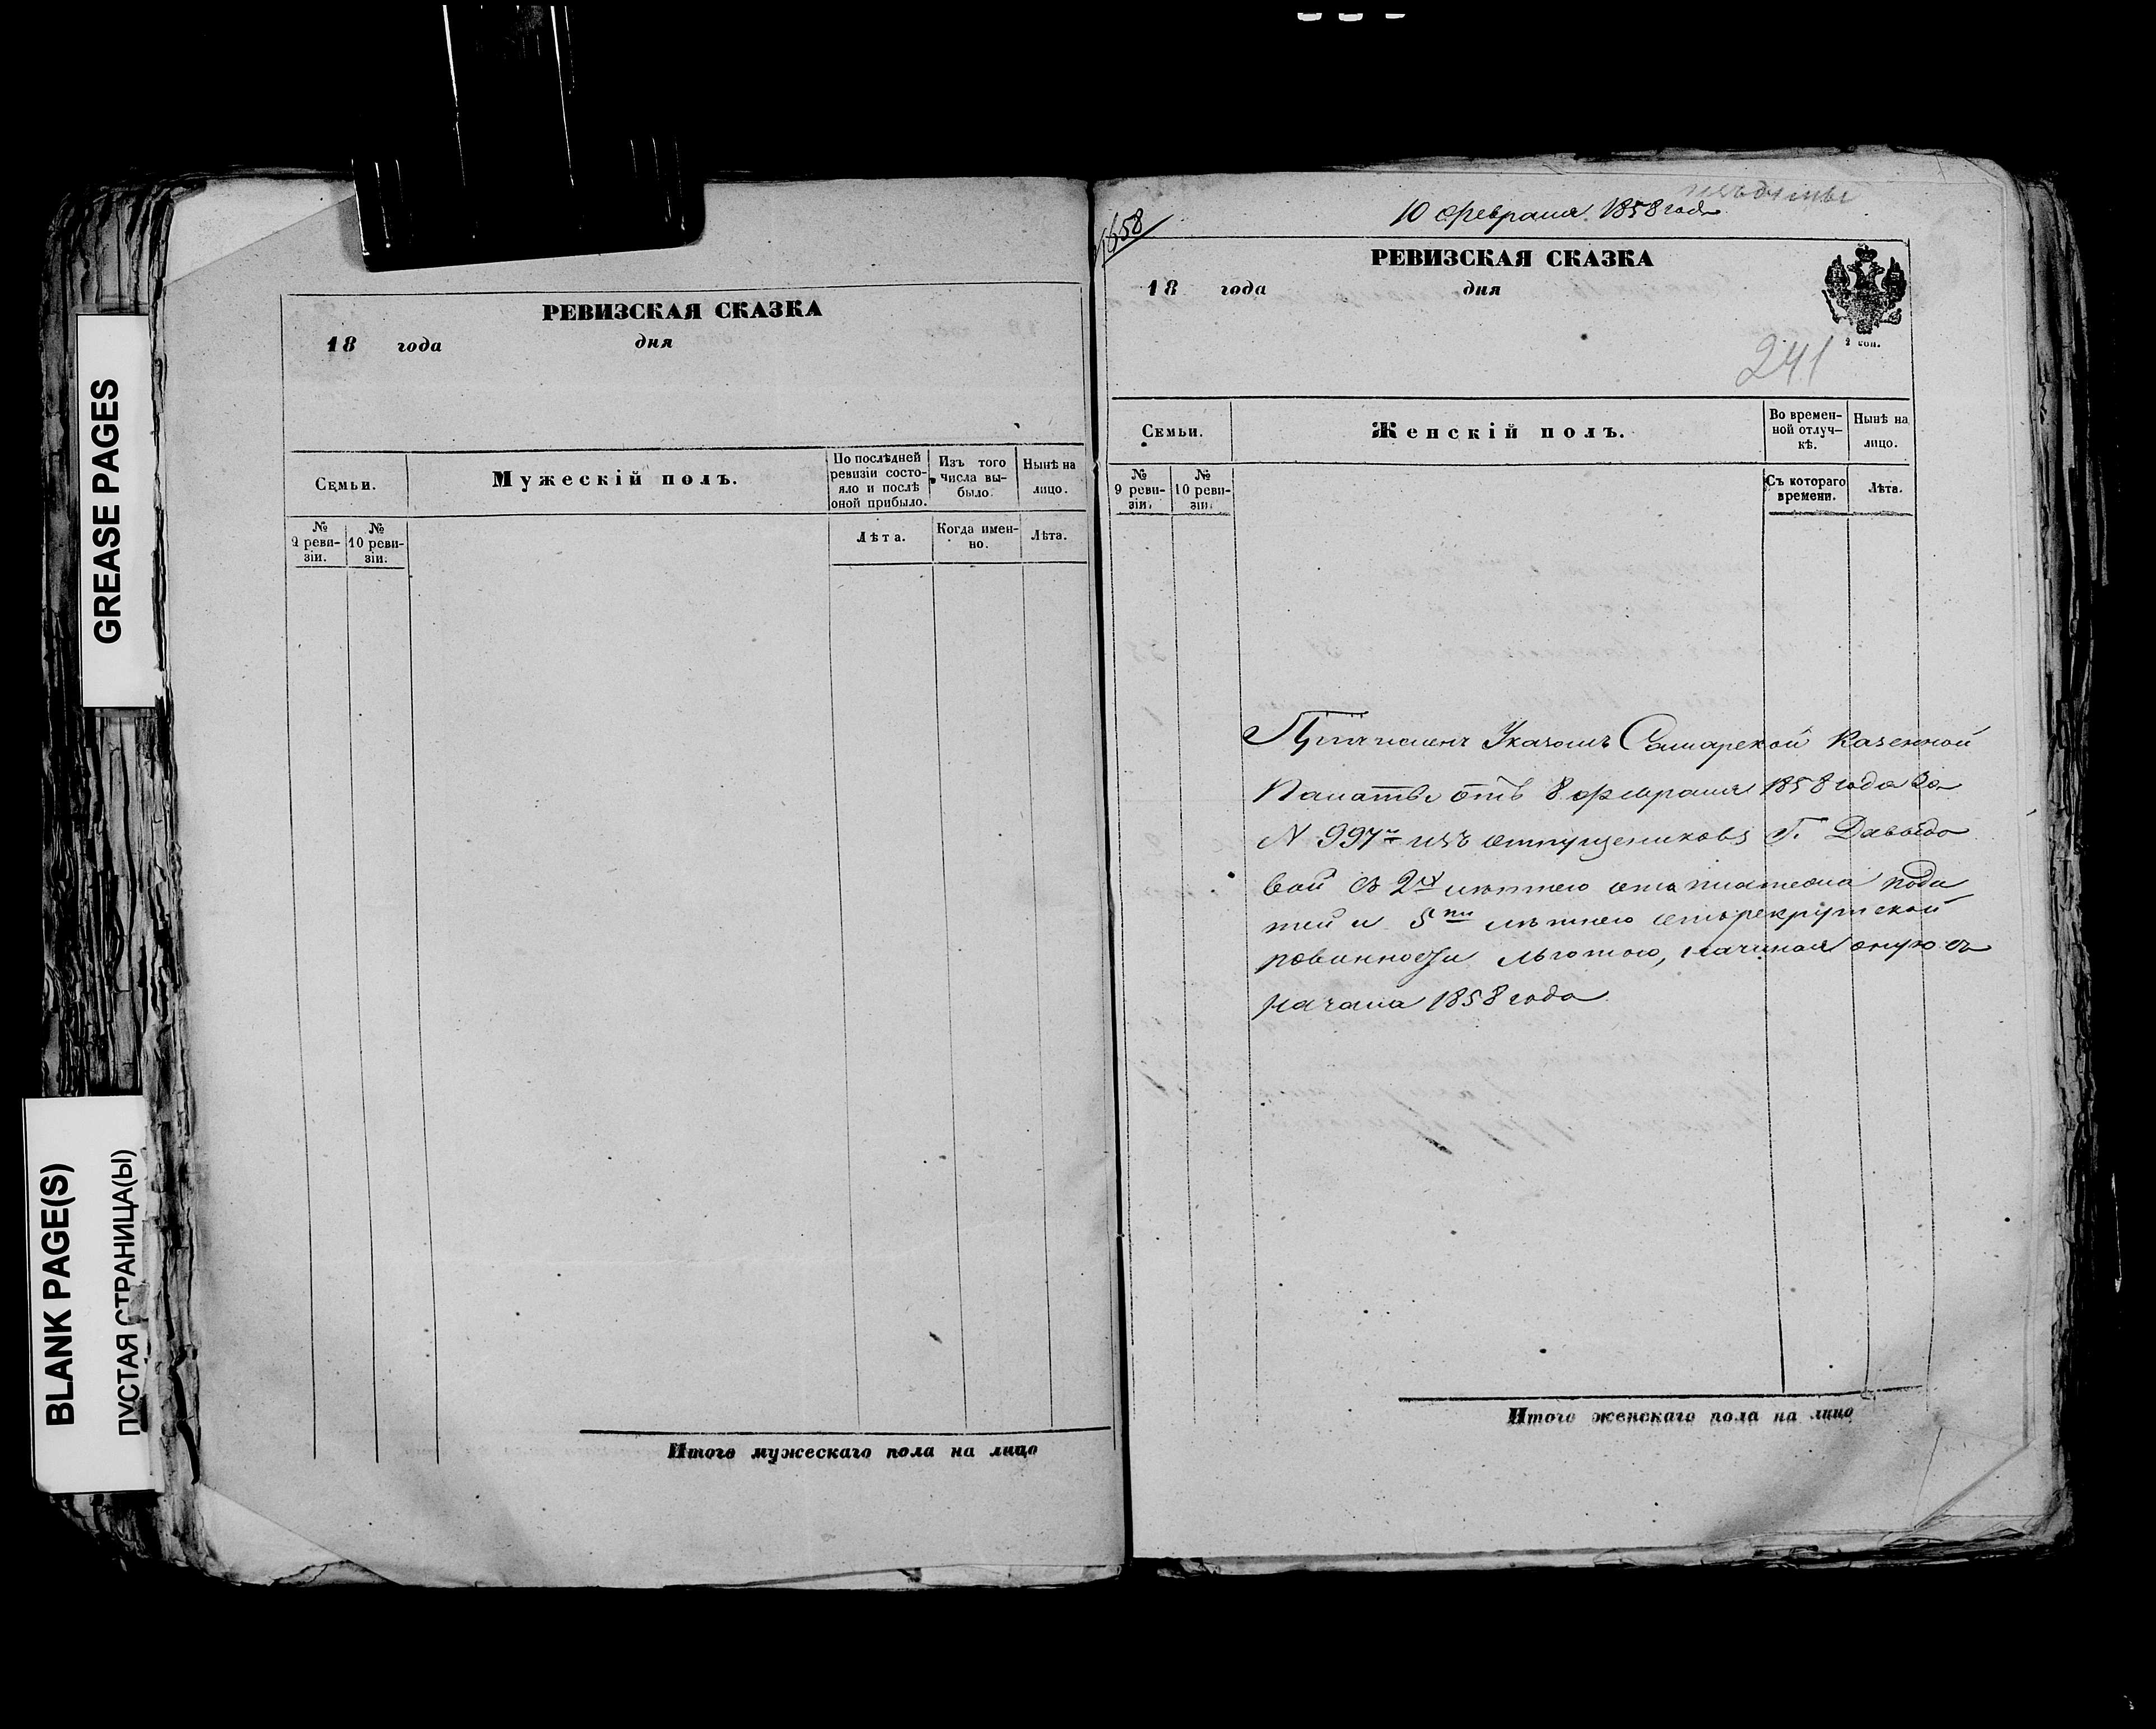 GREASE PAGES
BLANK PAGE(S)
ПУСТАЯ СТРАНИЦА(Ы)
РЕВИЗСКАЯ СКАЗКА
18 года дня
Семьи.
Мужескій полъ.
По послѣдней ревизіи состо-
яло и послѣ
оной прибыло.
Изъ того
числа вы-
было.
Нынѣ на
лицо.
№
9 реви-
зіи.
№
10 реви-
зіи.
Лѣта.
Когда имен-
но.
Лѣта.
Итого мужескаго пола на лицо
1658
10 февраля 1858 года
РЕВИЗСКАЯ СКАЗКА
18 года дня
2 коп.
241
Семьи.
Женскій полъ.
Во времен-
ной отлуч-
кѣ.
Нынѣ на
лицо.
№
9 реви-
зіи.
№
10 реви-
зіи.
Съ котораго
времени.
Лѣта.
Причисленъ Указомъ Самарской Казенной
Палаты отъ 8 февраля 1858 года За
N 997 изъ отпущениковъ Г. Давыдо
вой съ 2х лѣтнею отъ платежа пода
тей и 5ти лѣтнею отъ рекрутской
повинности льготою, начиная оную съ
начала 1858 года
Итого женскаго пола на лицо